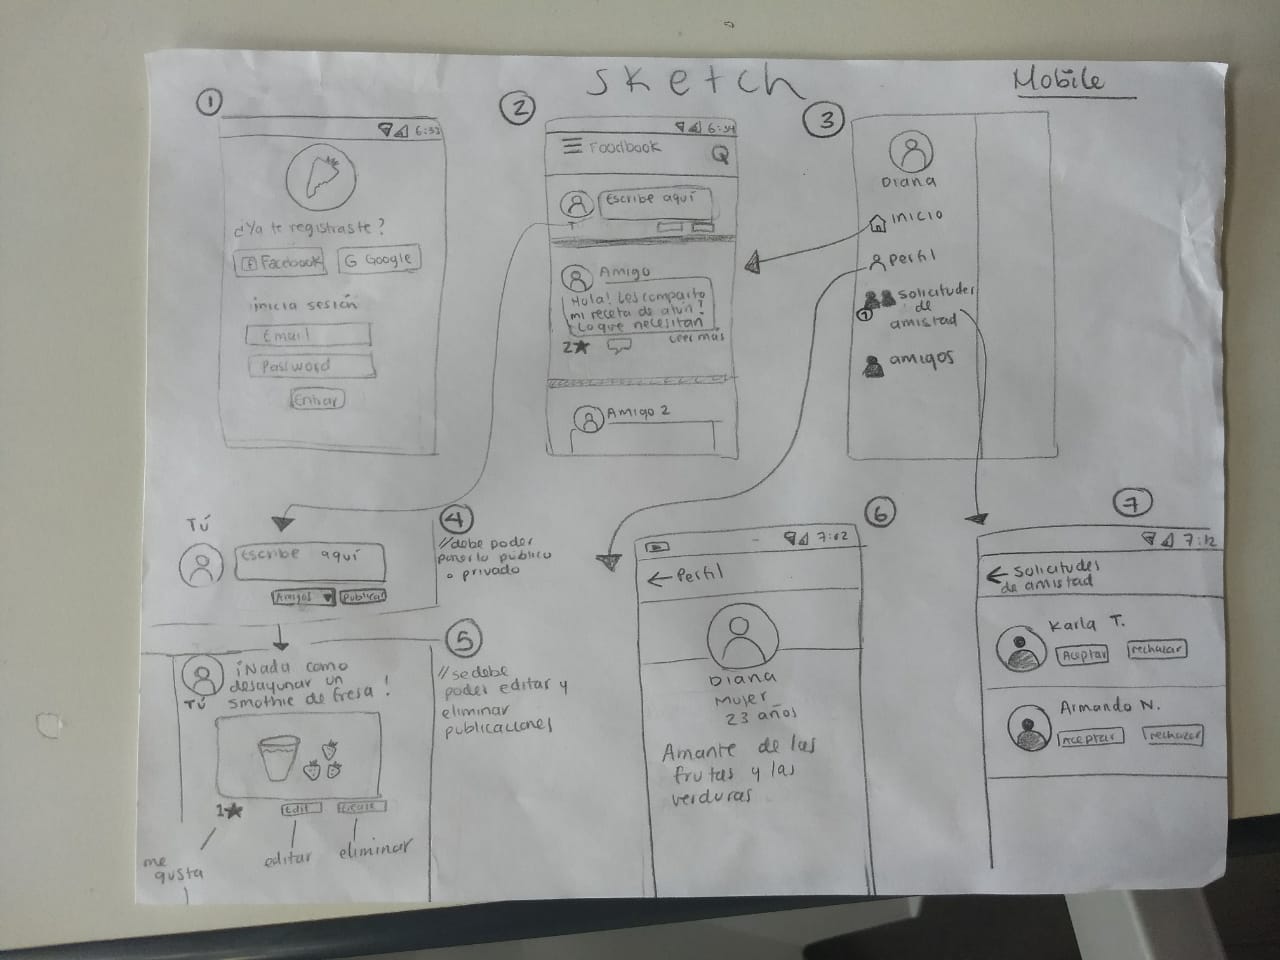 Sketch
Mobile
1
6:33
¿Ya te registraste?
f Facebook
G Google
inicia sesión
Email
Password
Entrar
2
6:34
Foodbook
Escribe aquí
T
Amigo
Hola! Les comparto
mi receta de atún!
Lo que necesitan
Leer más
2★
Amigo 2
3
Diana
inicio
Perfil
solicitudes
de
amistad
amigos
4
TÚ
Escribe aquí
Amigos ▼
Publicar
//debe poder
ponerlo público
o privado
5
TÚ
¡Nada como
desayunar un
smothie de fresa!
1★
Edit
me
gusta
editar
eliminar
//se debe
poder editar y
eliminar
publicaciones
6
7:02
← Perfil
Diana
Mujer
23 años
Amante de las
frutas y las
verduras
7
7:12
← Solicitudes
de amistad
Karla T.
Aceptar
rechazar
Armando N.
Aceptar
rechazar